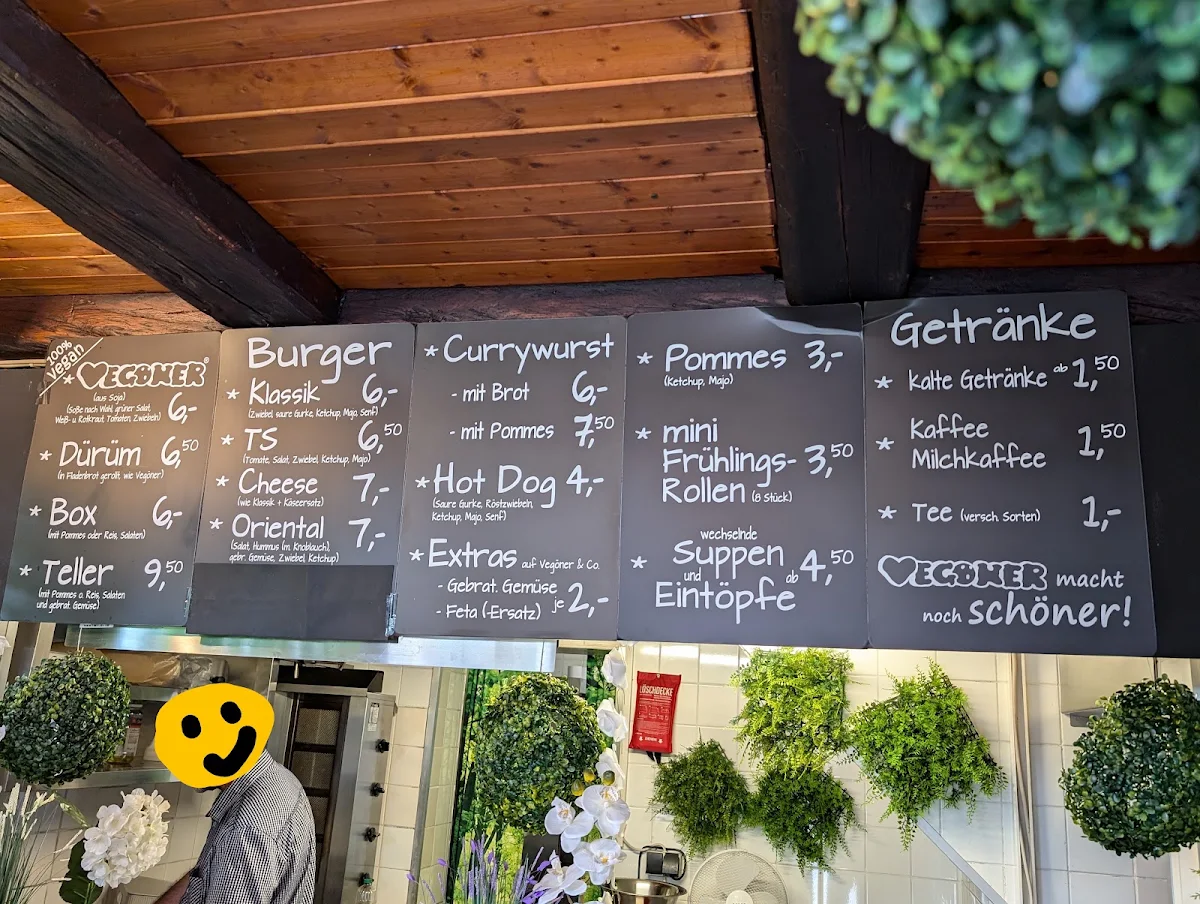 100%
vegan
* VEGÖNER®
(aus Soja)
(Soße nach Wahl, grüner Salat,
Weiß- u. Rotkraut, Tomaten, Zwiebeln) 6,-
* Dürüm 6,50
(in Fladenbrot gerollt, wie Vegöner)
* Box 6,-
(mit Pommes oder Reis, Salaten)
* Teller 9,50
(mit Pommes o. Reis, Salaten
und gebrat. Gemüse)
Burger
* Klassik 6,-
(Zwiebel, saure Gurke, Ketchup, Majo, Senf)
* TS 6,50
(Tomate, Salat, Zwiebel, Ketchup, Majo)
* Cheese 7,-
(wie Klassik + Käseersatz)
* Oriental 7,-
(Salat, Hummus (m. Knoblauch),
gebr. Gemüse, Zwiebel, Ketchup)
* Currywurst
- mit Brot 6,-
- mit Pommes 7,50
* Hot Dog 4,-
(Saure Gurke, Röstzwiebeln,
Ketchup, Majo, Senf)
* Extras auf Vegöner & Co.
- Gebrat. Gemüse
- Feta (-Ersatz) je 2,-
* Pommes 3,-
(Ketchup, Majo)
* mini
Frühlings- 3,50
Rollen (8 Stück)
wechselnde
* Suppen
und ab 4,50
Eintöpfe
Getränke
* kalte Getränke ab 1,50
* Kaffee
Milchkaffee 1,50
* Tee (versch. Sorten) 1,-
VEGÖNER macht
noch schöner!
LÖSCHDECKE